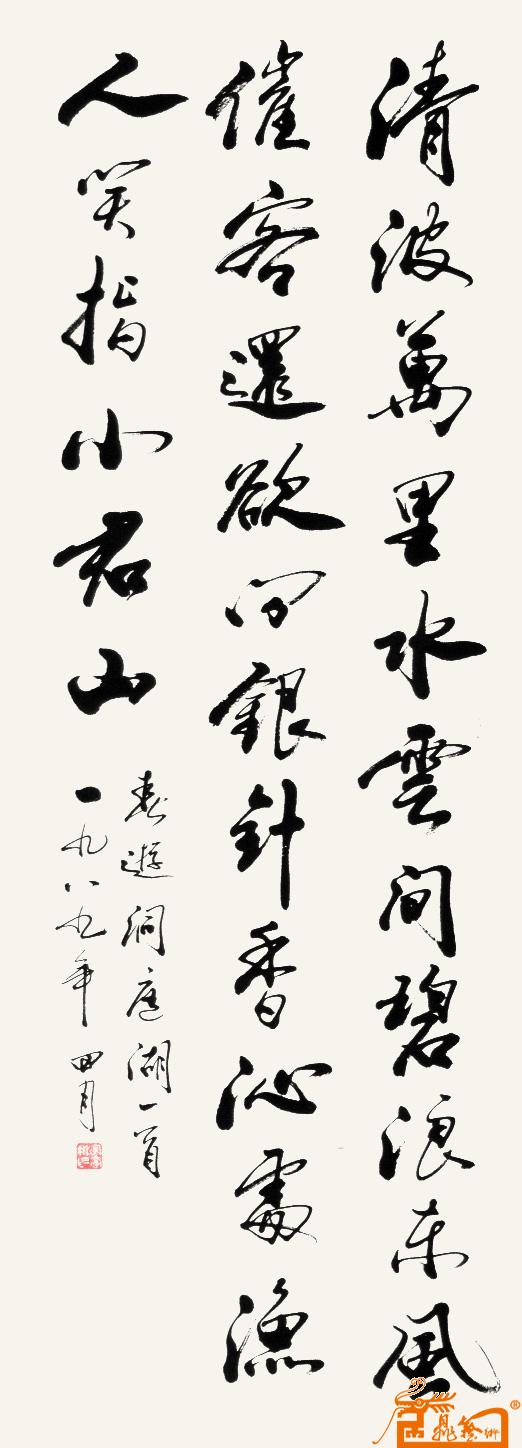 清波萬里水雲間碧浪東風
催客還欲問銀針香沁處漁
人笑指小君山
春遊洞庭湖一首
一九八九年四月